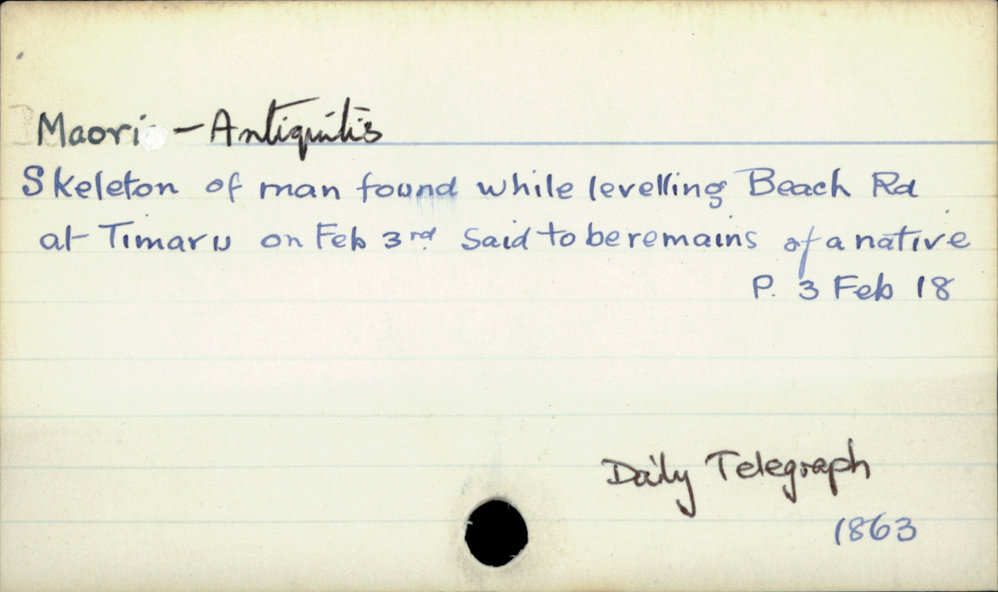 Maori - Antiquities
Skeleton of man found while levelling Beach Rd
at Timaru on Feb 3rd Said to be remains of a native
P. 3 Feb 18
Daily Telegraph
1863